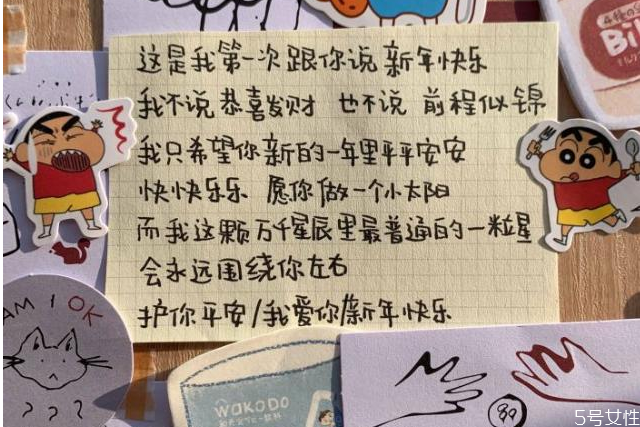 这是我第一次跟你说新年快乐
我不说恭喜发财 也不说 前程似锦
我只希望你新的一年里平平安安
快快乐乐 愿你做一个小太阳
而我这颗万千星辰里最普通的一粒星
会永远围绕你左右
护你平安/我爱你/新年快乐
AM I OK
? ? ?
WaKODO
5号女性